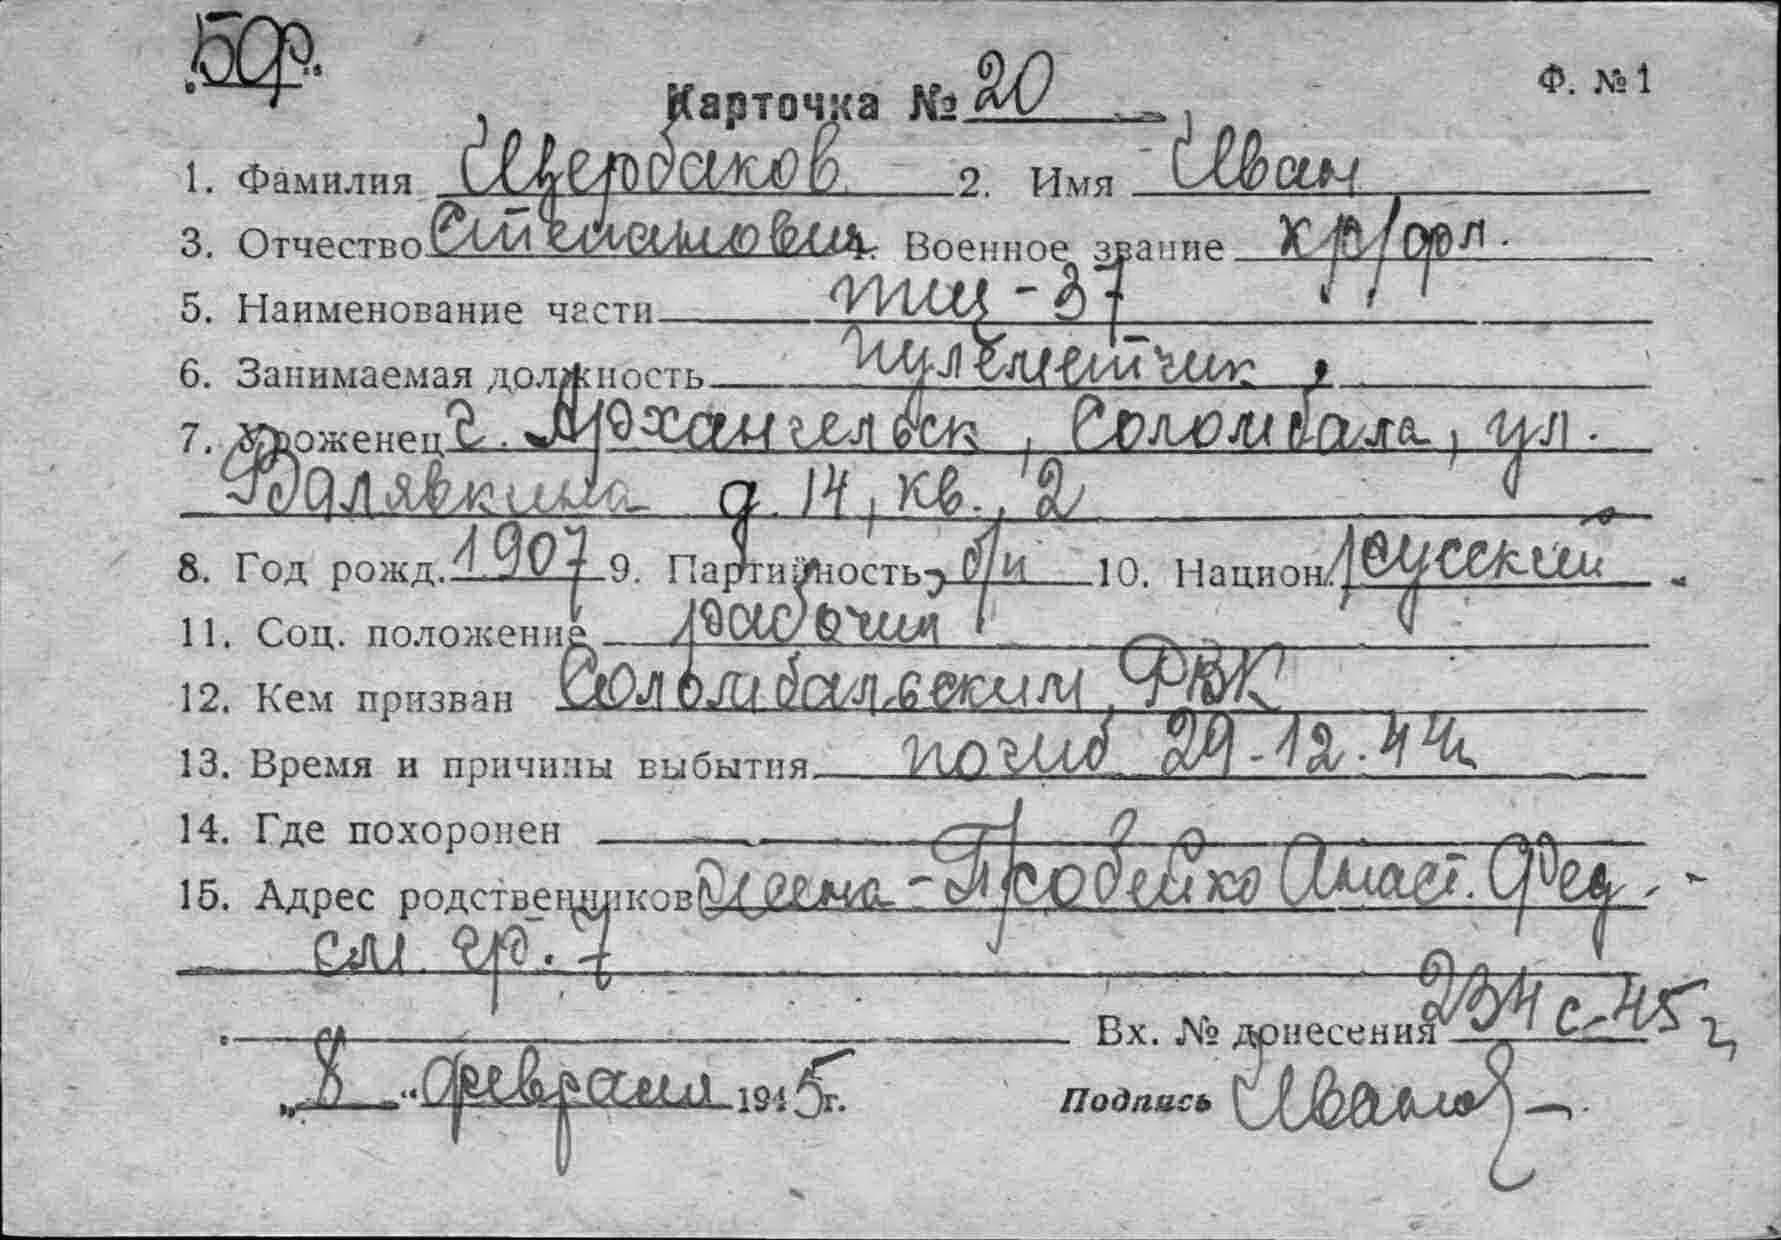 50р.
Карточка № 20 Ф. №1
1. Фамилия Щербаков 2. Имя Иван
3. Отчество Степанович 4. Военное звание кр/фл.
5. Наименование части тщ-37
6. Занимаемая должность пулеметчик
7. Уроженец г. Архангельск, Соломбала, ул.
Валявкина д. 14, кв. 2
8. Год рожд. 1907 9. Партийность б/п 10. Национ. русский
11. Соц. положение рабочий
12. Кем призван Соломбальским РВК
13. Время и причины выбытия погиб 29-12.44г
14. Где похоронен
15. Адрес родственников жена - Пробейко Анаст. Фед.
см. гр. 7
Вх. № донесения 234с-45г
„8“ февраля 1945г. Подпись Иванов